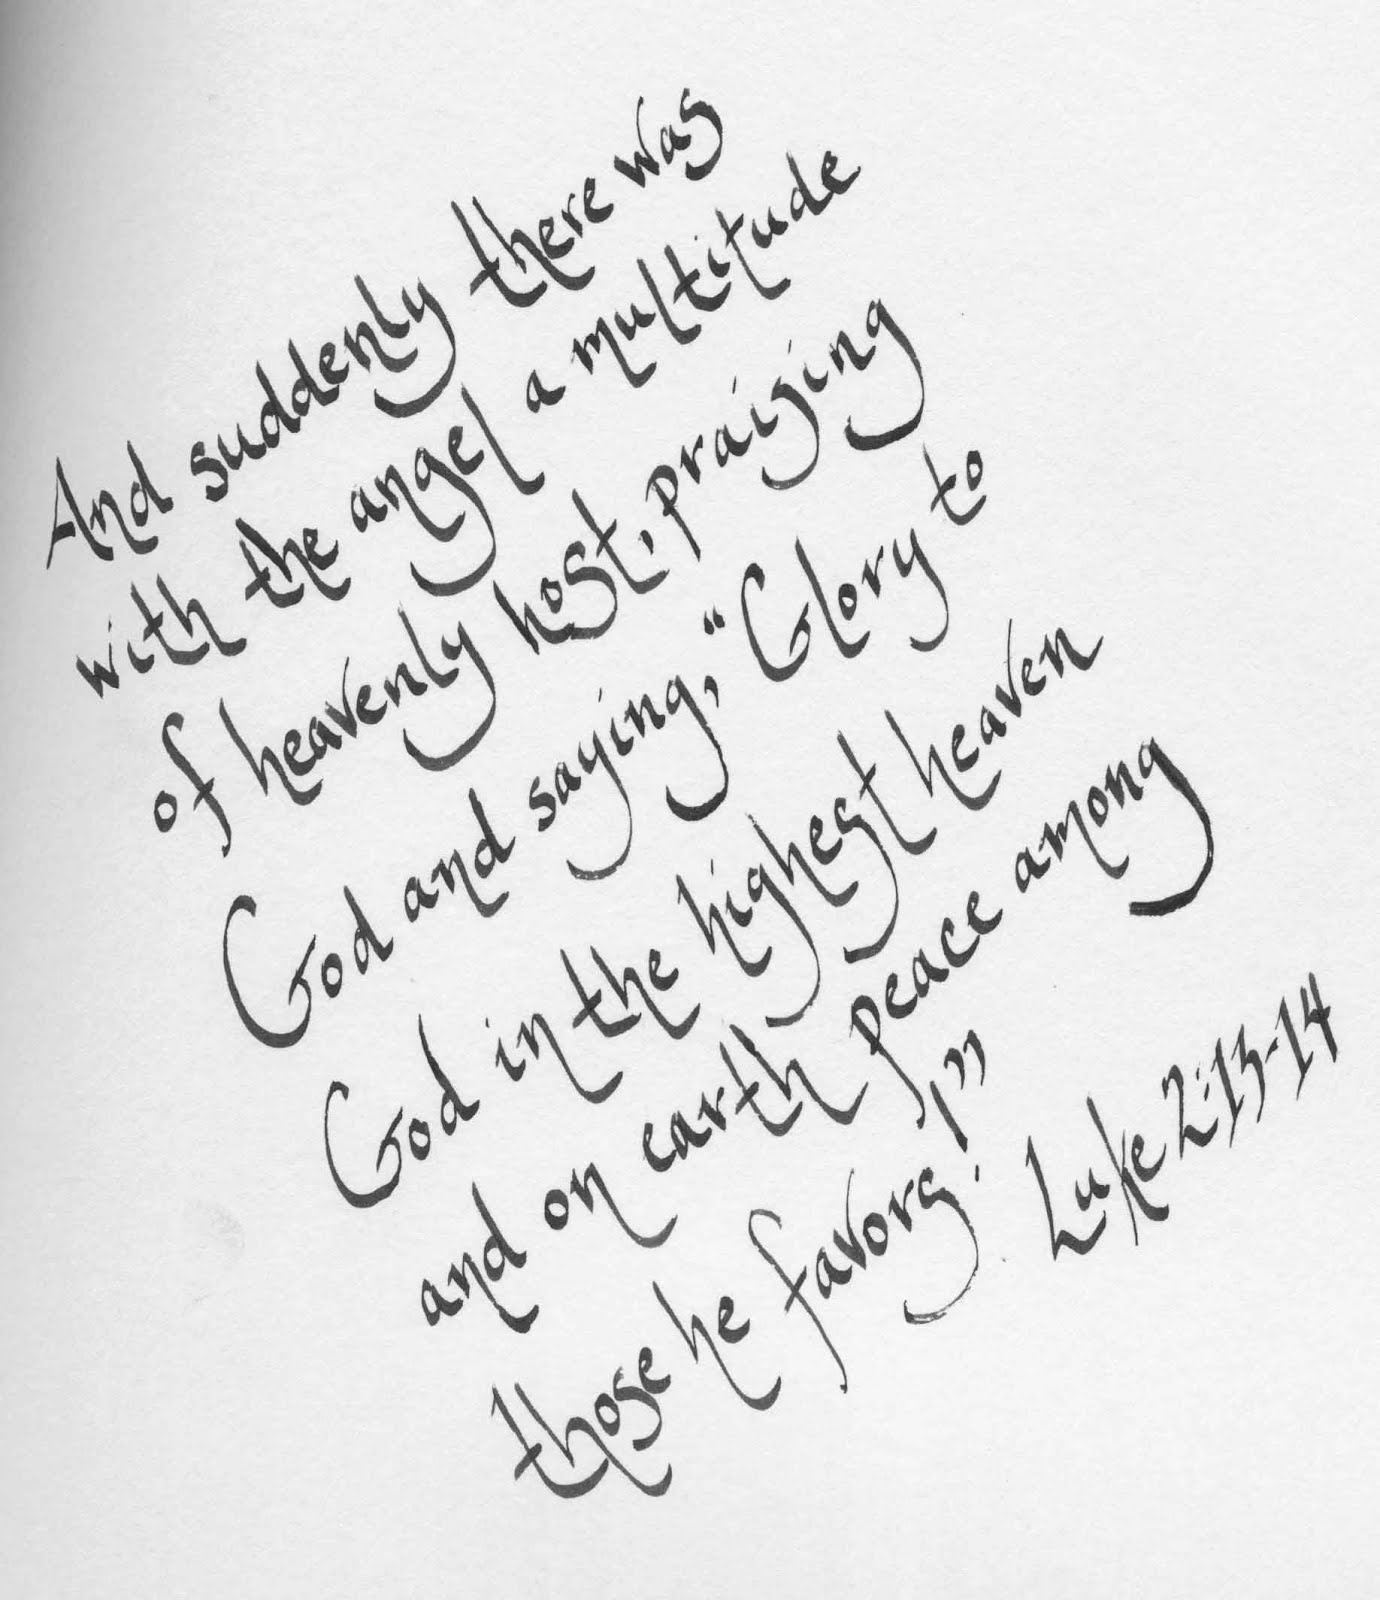 And suddenly there was
with the angel a multitude
of heavenly host, praising
God and saying, "Glory to
God in the highest heaven
and on earth peace among
those he favors!" Luke 2:13-14